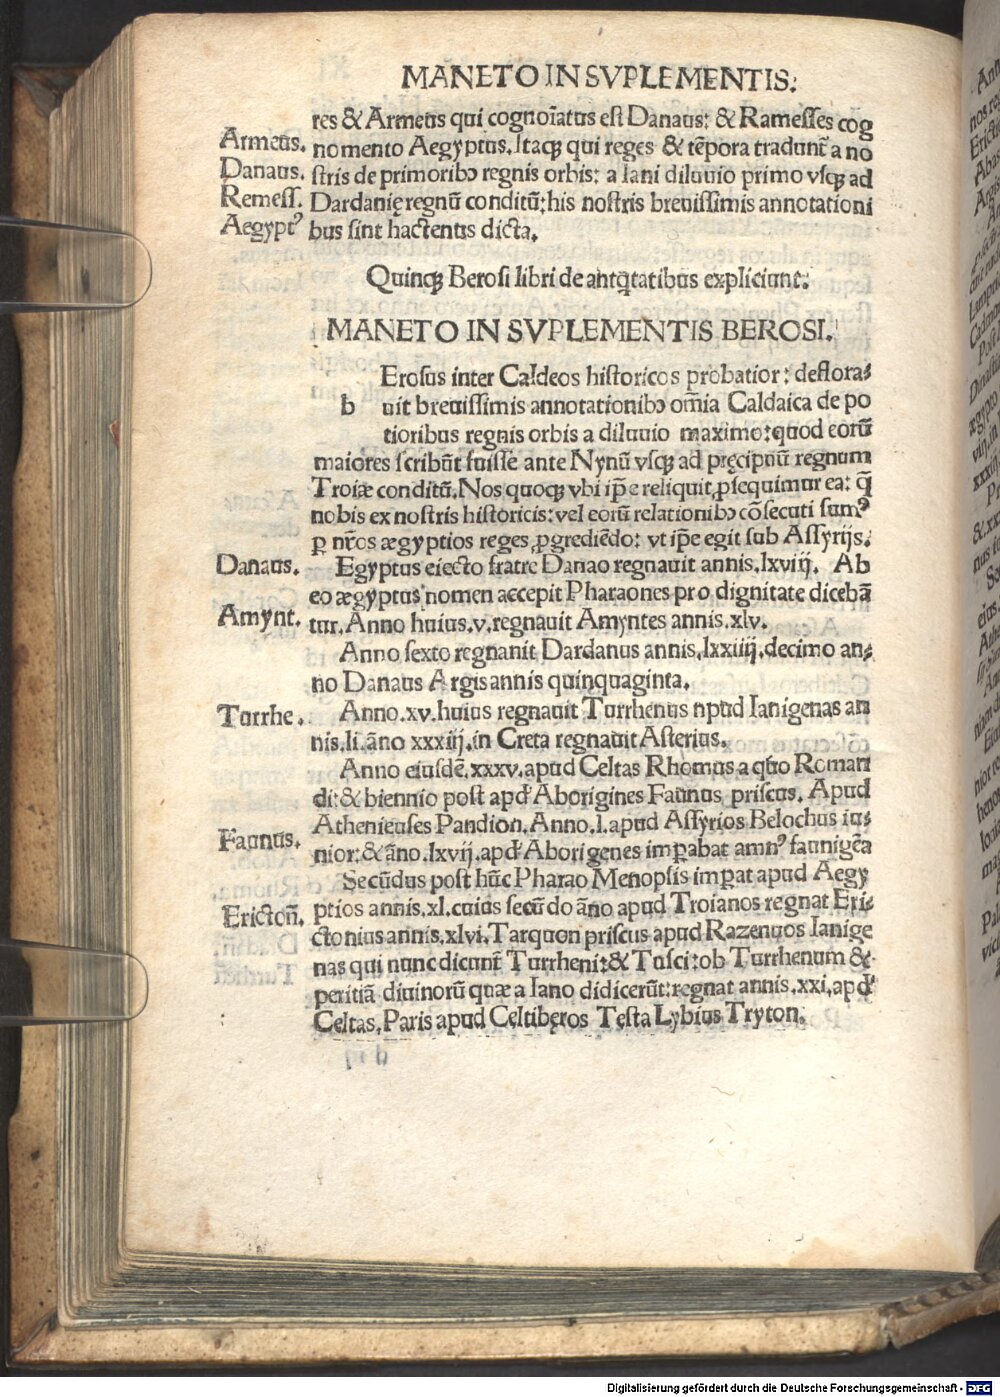 MANETO IN SVPLEMENTIS:
res & Armeus qui cognoīatus est Danaus: & Ramesses cog
Armeus.
nomento Aegyptus. Itaqꝫ qui reges & tēpora tradunt̄ a no
Danaus.
stris de primoribꝰ regnis orbis: a Iani diluuio primo vsqꝫ ad
Remess.
Dardanię regnū conditū: his nostris breuissimis annotationi
Aegyptꝰ
bus sint hactenus dicta.
Quinqꝫ Berosi libri de antq̄tatibus expliciunt:
MANETO IN SVPLEMENTIS BEROSI.
Erosus inter Caldeos historicos probatior: deflora⸗
b uit breuissimis annotationibꝰ om̄ia Caldaica de po
tioribus regnis orbis a diluuio maximo: quod eorū
maiores scribūt fuisse ante Nynū vsqꝫ ad pręcipuū regnum
Troiæ conditū. Nos quoqꝫ vbi ip̄e reliquit, ꝓsequimur ea: q̄
nobis ex nostris historicis: vel eorū relationibꝰ cōsecuti sumꝰ
ꝑ nr̄os ægyptios reges, ꝓgrediēdo: vt ip̄e egit sub Assyrijs.
Danaus.
Egyptus eiecto fratre Danao regnauit annis. lxviij. Ab
eo ægyptus nomen accepit Pharaones pro dignitate dicebā
Amynt.
tur. Anno huius. v. regnauit Amyntes annis. xlv.
Anno sexto regnanit Dardanus annis. lxxiiij. decimo an⸗
no Danaus Argis annis quinquaginta.
Turrhe.
Anno. xv. huius regnauit Turrhenus npud Ianigenas an
nis. li. āno xxxiij. in Creta regnauit Asterius.
Anno eiusdē. xxxv. apud Celtas Rhomus a quo Roman
di: & biennio post apd' Aborigines Faunus priscus. Apud
Athenieuses Pandion. Anno. l. apud Assyrios Belochus iu⸗
Faunus.
nior: & āno. lxvij. apd' Aborigenes imꝑabat amnꝰ faunigēa
Secūdus post hūc Pharao Menopsis imꝑat apud Aegy
ptios annis. xl. cuius secūdo āno apud Troianos regnat Eri⸗
Erictoñ.
ctonius annis. xlvi. Tarquon priscus apud Razenuos Ianige
nas qui nunc dicunt̄ Turrheni: & Tusci: ob Turrhenum &
peritiā diuinorū quæ a Iano didicerūt: regnat annis. xxi. apd'
Celtas. Paris apud Celtibęros Testa Lybius Tryton.
Digitalisierung gefördert durch die Deutsche Forschungsgemeinschaft - DFG